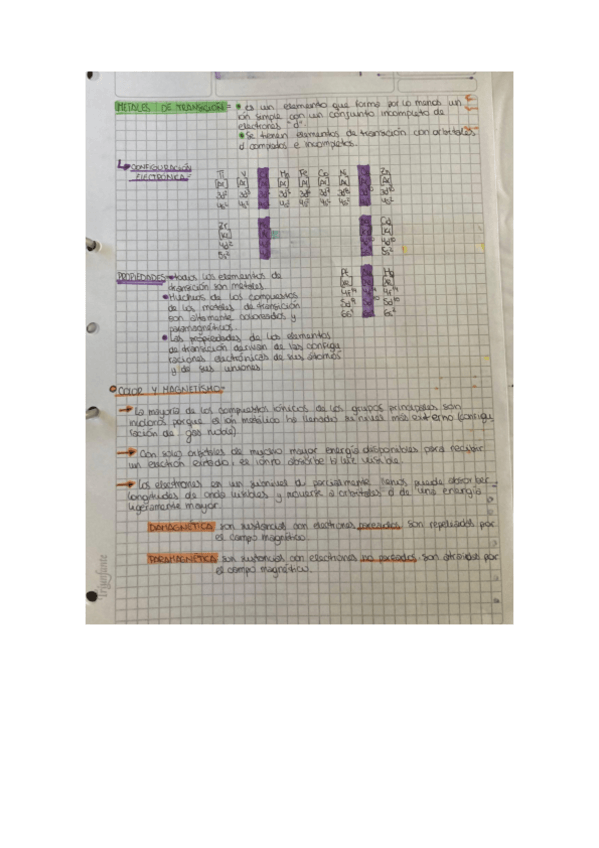 METALES DE TRANSICIÓN= • es un elemento que forma por lo menos un
ion simple con un conjunto incompleto de
electrones "d".
• Se tienen elementos de transición con orbitales
d completos e incompletos.
CONFIGURACIÓN
ELECTRÓNICA=
Ti V Mn Fe Co Ni Zn
[Ar] [Ar] [Ar] [Ar] [Ar] [Ar] [Ar]
3d² 3d³ 3d⁵ 3d⁶ 3d⁷ 3d⁸ 3d¹⁰
4s² 4s² 4s² 4s² 4s² 4s²
Zr Cd
[Kr] [Kr]
4d² 4d¹⁰
5s² 5s²
PROPIEDADES= • todos los elementos de
transición son metales
• Muchos de los compuestos
de los metales de transición
son altamente coloreados y
paramagnéticos
• Las propiedades de los elementos
de transición derivan de las configu
raciones electrónicas de sus átomos
y de sus uniones.
Pt Hg
[Xe] [Xe]
4f¹⁴ 4f¹⁴
5d⁹ 5d¹⁰
6s¹ 6s²
COLOR Y MAGNETISMO=
→ La mayoría de los compuestos iónicos de los grupos principales son
incloros porque es ion metálico ha llenado su nivel más externo (configu
ración de gas noble)
→ Con solos orbitales de mucho mayor energía disponibles para recibir
un electrón exitado, es ion no absorbe la luz visible.
→ Los electrones en un subnivel d parcialmente llenos puede absorber
longitudes de onda visibles y moverse a orbitales d de una energía
ligeramente mayor.
DIAMAGNÉTICA son sustancias con electrones pareados, son repelidas por
el campo magnético.
PARAMAGNÉTICA son sustancias con electrones no pareados, son atraídas por
el campo magnético.
Triunfante